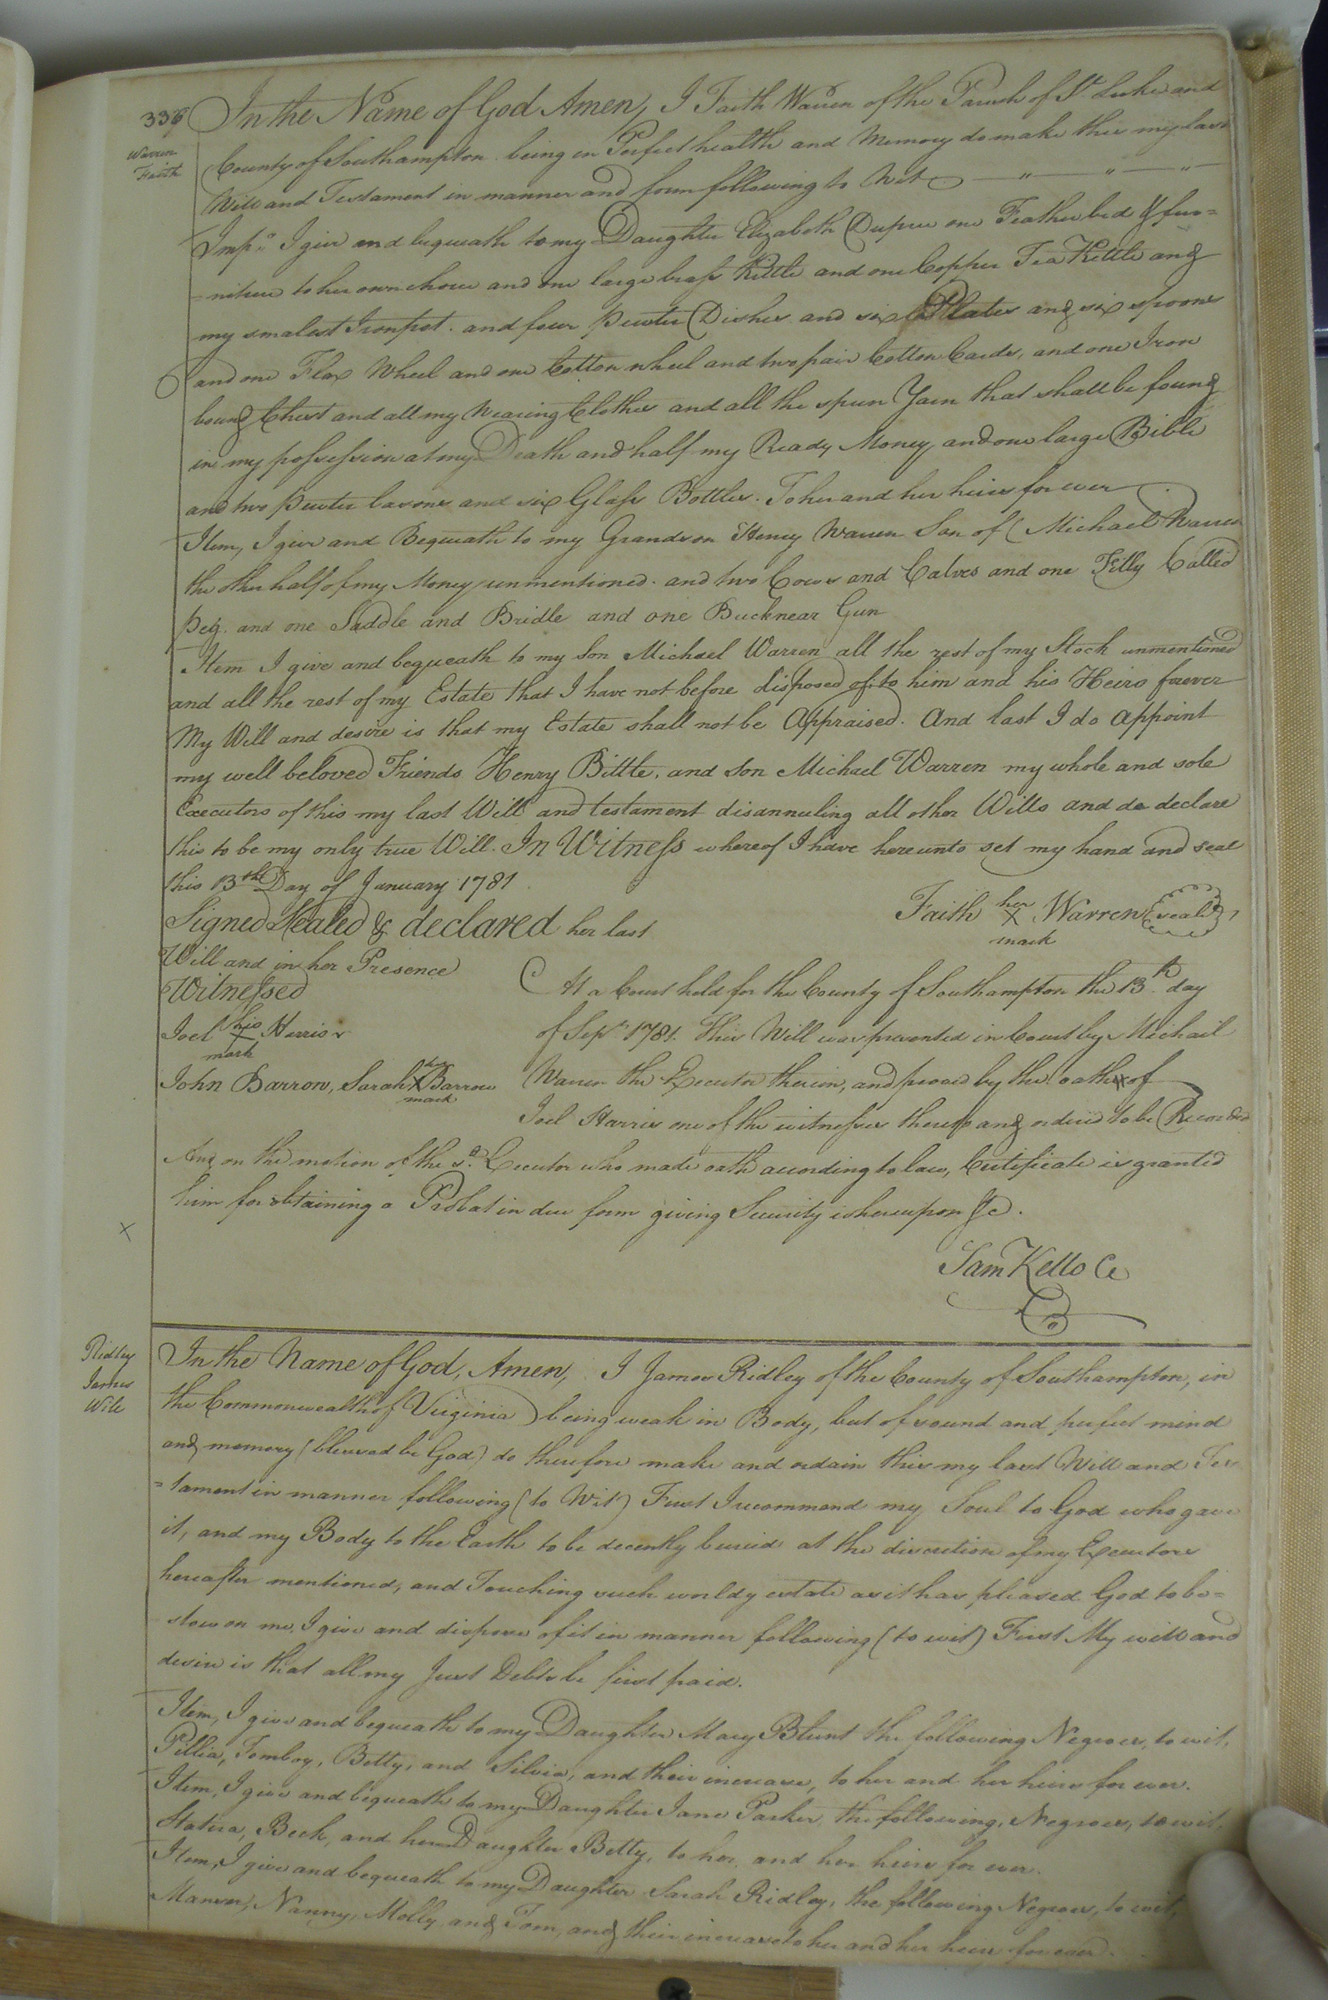 336
Warren
Faith
In the Name of God Amen, I Faith Warren of the Parish of St Luke and
County of Southampton being in Perfect health and Memory do make this my last
Will and Testament in manner and form following to Wit — " — " — "
Imps I give and bequeath to my Daughter Elizabeth Dupree one Feather bed & fur=
=niture to her own choice and one large brass Kettle and one Copper Tea Kettle and
my smalest Ironpot. and four Pewter Dishes and six Plates and six spoons
and one Flax Wheel and one Cotton wheel and two pair Cotton Cards, and one Iron
bound Chest and all my Wearing Clothes and all the spun Yarn that shall be found
in my possession at my Death and half my Ready Money, and one large Bible
and two Pewter basons and six Glass Bottles. To her and her heirs for ever
Item, I give and Bequeath to my Grandson Henry Warren Son of Michael Warren
the other half of my Money unmentioned. and two Cows and Calves and one Filly Called
Peg. and one Saddle and Bridle and one Bucknear Gun
Item I give and bequeath to my Son Michael Warren all the rest of my Stock unmentioned
and all the rest of my Estate that I have not before disposed of, to him and his Heirs forever
My Will and desire is that my Estate shall not be Appraised. And last I do Appoint
my well beloved Friends Henry Bittle, and Son Michael Warren my whole and sole
Executors of this my last Will and testament disannuling all other Wills and do declare
this to be my only true Will. In Witness whereof I have hereunto set my hand and seal
this 13th Day of January 1781
Signed Sealed & declared her last
Will and in her Presence
Witnessed
Joel his X mark Harris
John Barrow, Sarah her X mark Barrow
Faith her X mark Warren (seal)
At a Court held for the County of Southampton the 13th day
of Sept 1781. This Will was presented in Court by Michail
Warren the Executor therein, and proved by the oath of
Joel Harris one of the witnesses thereto and ordered to be Recorded
And on the motion of the sd Executor who made oath according to law, Certificate is granted
him for obtaining a Probat in due form giving Security whereupon &c.
X
Sam Kello Ce
Ridley
James
Will
In the Name of God, Amen, I James Ridley of the County of Southampton, in
the Commonwealth of Virginia being weak in Body, but of sound and perfect mind
and memory (blessed be God) do therefore make and ordain this my last Will and Tes
=tament in manner following (to Wit) First I recommend my Soul to God who gave
it, and my Body to the Earth to be decently buried at the discretion of my Executors
hereafter mentioned, and Touching such worldy estate as it has pleased God to be=
stow on me, I give and dispose of it in manner following (to wit) First My will and
desire is that all my Just Debts be first paid.
Item, I give and bequeath to my Daughter Mary Blunt the following Negroes, to wit,
Pillia, Tomboy, Betty, and Silvia, and their increase, to her and her heirs for ever.
Item, I give and bequeath to my Daughter Jane Parker, the following, Negroes, to wit,
Statira, Beck, and her Daughter Betty, to her, and her heirs for ever.
Item, I give and bequeath to my Daughter Sarah Ridley, the following Negroes, to wit,
Nanny, Molly, and Tom, and their increase to her and her heirs for ever.